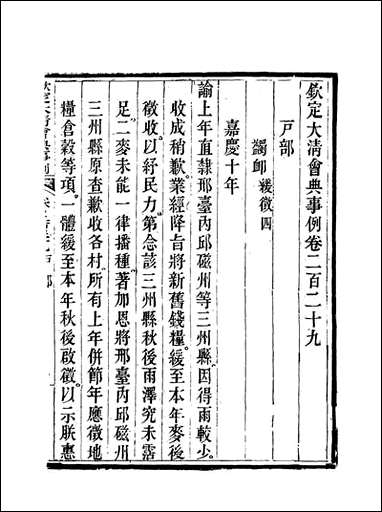 欽定大清會典事例卷二百二十九
戸部
蠲卹 緩徵四
嘉慶十年
諭上年直隸邢臺內邱磁州等三州縣因得雨較少
收成稍歉業經降旨將新舊錢糧緩至本年麥後
徵收以紓民力第念該三州縣秋後雨澤究未霑
足二麥未能一律播種著加恩將邢臺內邱磁州
三州縣原查歉收各村所有上年併節年應徵地
糧倉穀等項一體緩至本年秋後啟徵以示朕惠